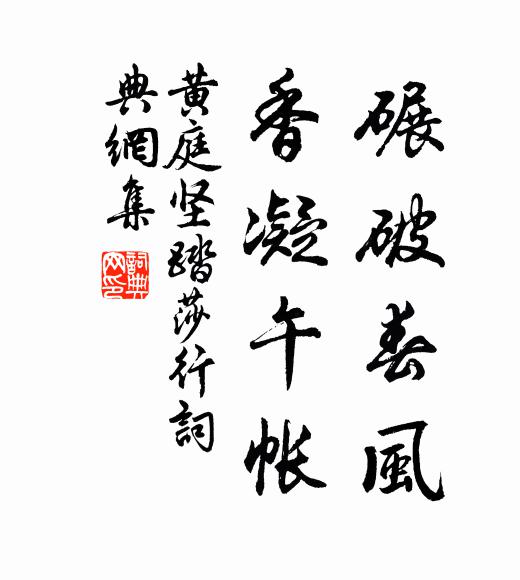 碾破春風
香凝午帳
黄庭坚踏莎行詞
典網集
詞典网印